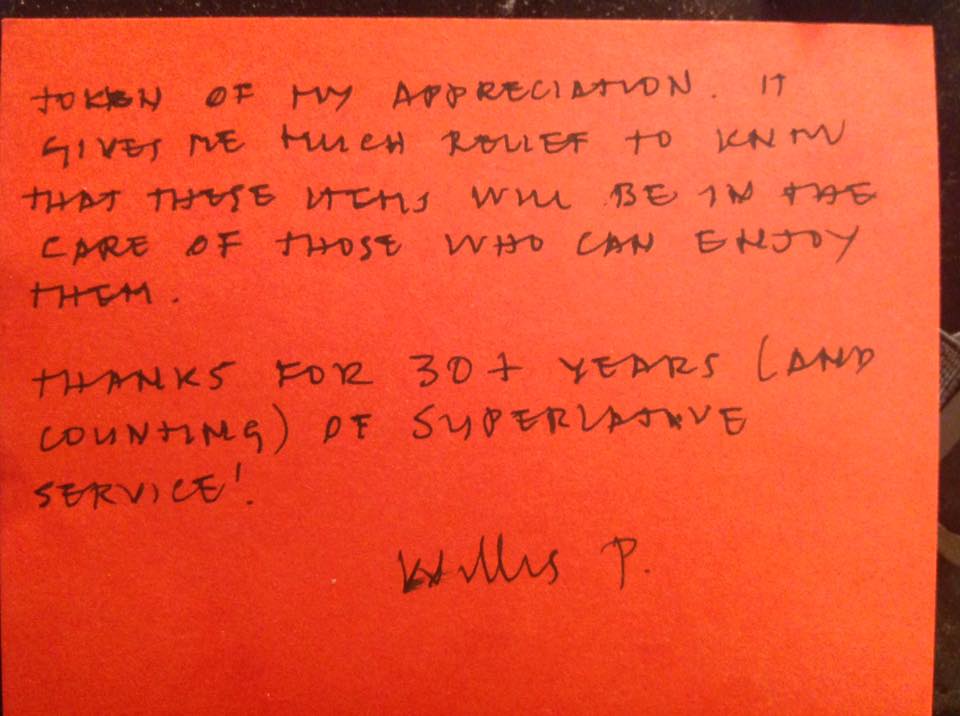 TOKEN OF MY APPRECIATION. IT
GIVES ME MUCH RELIEF TO KNOW
THAT THESE ITEMS WILL BE IN THE
CARE OF THOSE WHO CAN ENJOY
THEM.
THANKS FOR 30+ YEARS (AND
COUNTING) OF SUPERLATIVE
SERVICE!
Willis P.